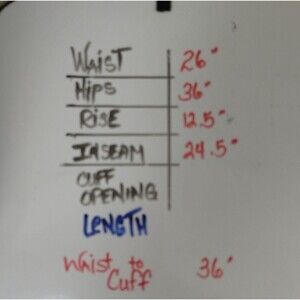 WAIST 26"
HIPS 36"
RISE 12.5"
INSEAM 24.5"
CUFF
OPENING
LENGTH
Waist to 36"
Cuff